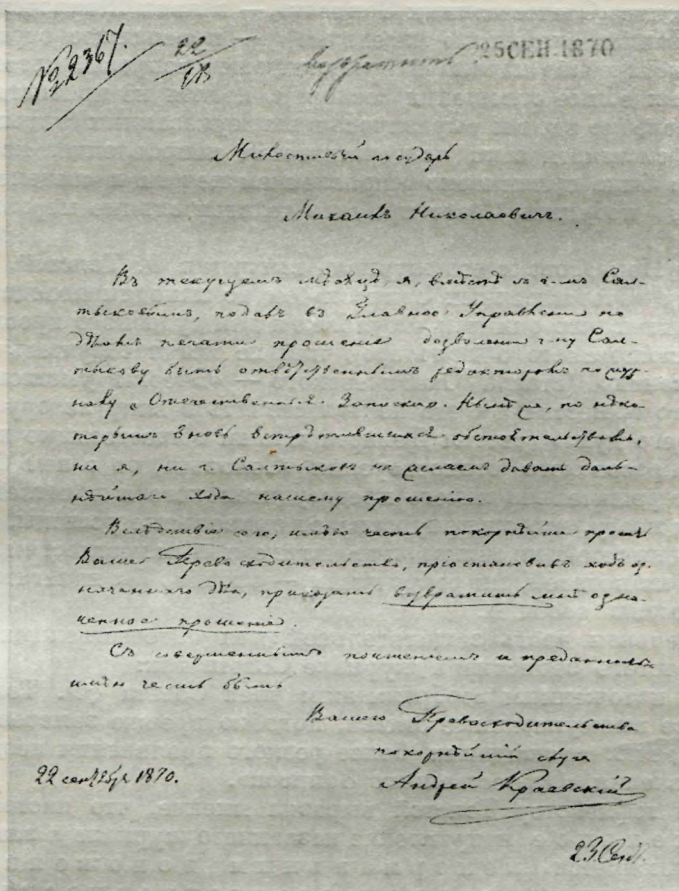 № 2367. 22/IX возвратить 25 СЕН. 1870
Милостивый государь
Михаилъ Николаевичъ.
Въ текущемъ я, вмѣстѣ съ г-мъ Сал-
тыковымъ, подалъ въ Главное Управленіе по
дѣламъ печати прошеніе дозволеніи г-ну Сал-
тыкову быть отвѣтственнымъ редакторомъ по жур-
налу „Отечественныя Записки". Нынѣ же, по нѣко-
торымъ вновь встрѣтившимся обстоятельствамъ,
ни я, ни г. Салтыковъ не желаемъ давать даль-
нѣйшаго хода нашему прошенію.
Вслѣдствіе сего, имѣю честь покорнѣйше просить
Ваше Превосходительство, пріостановивъ ходъ оз-
наченнаго дѣла, приказать возвратить мнѣ озна-
ченное прошеніе.
Съ совершеннымъ почтеніемъ и преданностью
имѣю честь быть
Вашего Превосходительства
покорнѣйшій слуга
22 сентября 1870. Андрей Краевскій
23 Сент.